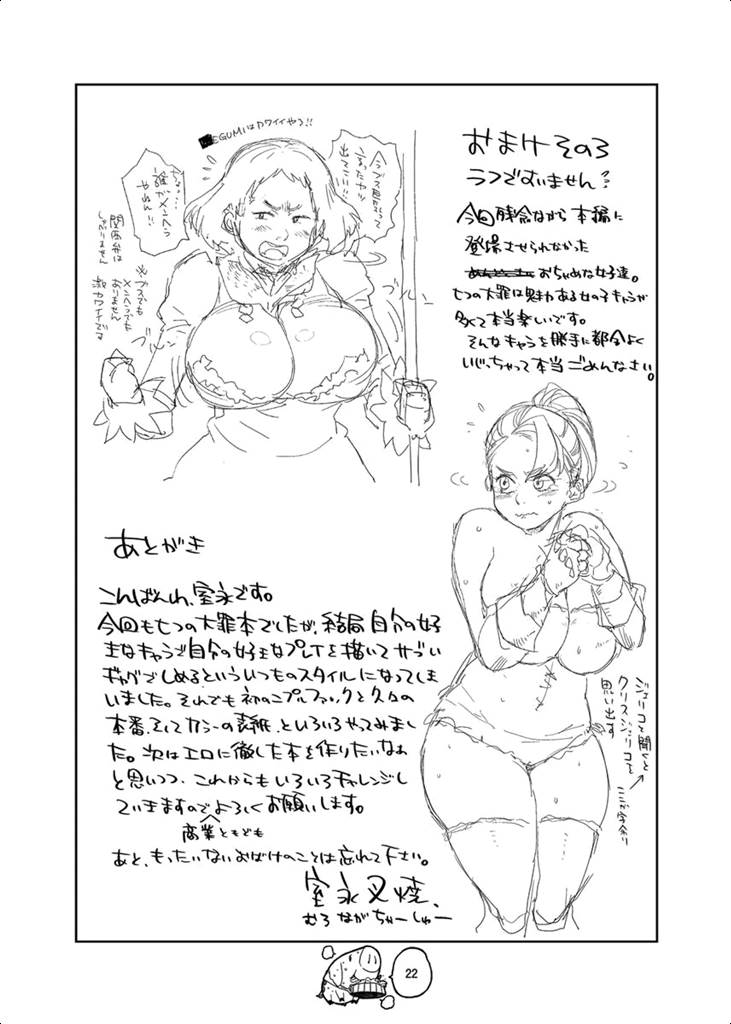 おまけその3
ラフですいません??
今回残念ながら本編に
登場させられなかった
おちゃめな女子達。
七つの大罪は魅力ある女の子キャラが
多くて本当楽しいです。
そんなキャラを勝手に都合よく
いじっちゃって本当ごめんなさい。
EGUMIはカワイイやろ!!
出て
ちょ…
誰がメンヘラ
やねん!!
関西弁は
しゃべりません
※ブスでも
メンヘラでも
おりません
激カワイイです
ブルン
あとがき
こんばんわ、室永です。
今回も七つの大罪本でしたが、結局自分の好
きなキャラで自分の好きなプレイを描いて
ギャグでしめるといういつものスタイルになってしま
いました。それでも初のニプルファックと久々の
本番、そしてカラーの表紙、といろいろやってみまし
た。次はエロに徹した本を作りたいなぁ
と思いつつ、これからもいろいろチャレンジし
ていきますのでよろしくお願いします。
商業ともども
あと、もったいないおばけのことは忘れて下さい。
室永叉焼、
むろながちゃーしゅー
ジェリコと聞くと
クリスジェリコを
思い出す
22